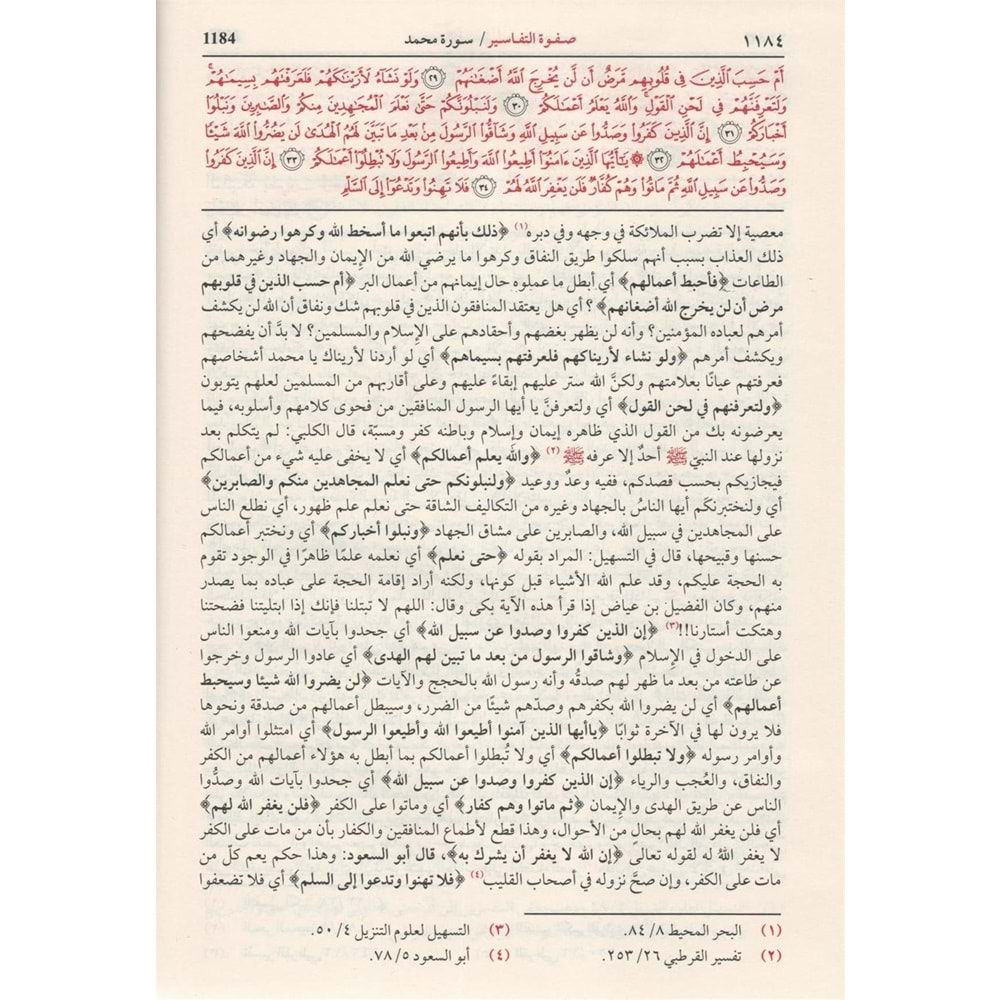 ١١٨٤ صفوة التفاسير / سورة محمد 1184
أَمْ حَسِبَ الَّذِينَ فِي قُلُوبِهِم مَّرَضٌ أَن لَّن يُخْرِجَ اللَّهُ أَضْغَانَهُمْ ﴿٢٩﴾ وَلَوْ نَشَاءُ لَأَرَيْنَاكَهُمْ فَلَعَرَفْتَهُم بِسِيمَاهُمْ ۚ
وَلَتَعْرِفَنَّهُمْ فِي لَحْنِ الْقَوْلِ ۚ وَاللَّهُ يَعْلَمُ أَعْمَالَكُمْ ﴿٣٠﴾ وَلَنَبْلُوَنَّكُمْ حَتَّىٰ نَعْلَمَ الْمُجَاهِدِينَ مِنكُمْ وَالصَّابِرِينَ وَنَبْلُوَا
أَخْبَارَكُمْ ﴿٣١﴾ إِنَّ الَّذِينَ كَفَرُوا وَصَدُّوا عَن سَبِيلِ اللَّهِ وَشَاقُّوا الرَّسُولَ مِن بَعْدِ مَا تَبَيَّنَ لَهُمُ الْهُدَىٰ لَن يَضُرُّوا اللَّهَ شَيْئًا
وَسَيُحْبِطُ أَعْمَالَهُمْ ﴿٣٢﴾ ۞ يَا أَيُّهَا الَّذِينَ آمَنُوا أَطِيعُوا اللَّهَ وَأَطِيعُوا الرَّسُولَ وَلَا تُبْطِلُوا أَعْمَالَكُمْ ﴿٣٣﴾ إِنَّ الَّذِينَ كَفَرُوا
وَصَدُّوا عَن سَبِيلِ اللَّهِ ثُمَّ مَاتُوا وَهُمْ كُفَّارٌ فَلَن يَغْفِرَ اللَّهُ لَهُمْ ﴿٣٤﴾ فَلَا تَهِنُوا وَتَدْعُوا إِلَى السَّلْمِ
معصية إلا تضرب الملائكة في وجهه وفي دبره(١) ﴿ذلك بأنهم اتبعوا ما أسخط الله وكرهوا رضوانه﴾ أي
ذلك العذاب بسبب أنهم سلكوا طريق النفاق وكرهوا ما يرضي الله من الإيمان والجهاد وغيرهما من
الطاعات ﴿فأحبط أعمالهم﴾ أي أبطل ما عملوه حال إيمانهم من أعمال البر ﴿أم حسب الذين في قلوبهم
مرض أن لن يخرج الله أضغانهم﴾ ؟ أي هل يعتقد المنافقون الذين في قلوبهم شك ونفاق أن الله لن يكشف
أمرهم لعباده المؤمنين؟ وأنه لن يظهر بغضهم وأحقادهم على الإسلام والمسلمين؟ لا بدَّ أن يفضحهم
ويكشف أمرهم ﴿ولو نشاء لأريناكهم فلعرفتهم بسيماهم﴾ أي لو أردنا لأريناك يا محمد أشخاصهم
فعرفتهم عيانًا بعلامتهم ولكنَّ الله ستر عليهم إبقاءً عليهم وعلى أقاربهم من المسلمين لعلهم يتوبون
﴿ولتعرفنهم في لحن القول﴾ أي ولتعرفنَّ يا أيها الرسول المنافقين من فحوى كلامهم وأسلوبه، فيما
يعرضونه بك من القول الذي ظاهره إيمان وإسلام وباطنه كفر ومسبّة، قال الكلبي: لم يتكلم بعد
نزولها عند النبيّ ﷺ أحدٌ إلا عرفه ﷺ (٢) ﴿والله يعلم أعمالكم﴾ أي لا يخفى عليه شيء من أعمالكم
فيجازيكم بحسب قصدكم، ففيه وعدٌ ووعيد ﴿ولنبلونكم حتى نعلم المجاهدين منكم والصابرين﴾
أي ولنختبرنكَم أيها الناسُ بالجهاد وغيره من التكاليف الشاقة حتى نعلم علم ظهور، أي نطلع الناس
على المجاهدين في سبيل الله، والصابرين على مشاق الجهاد ﴿ونبلوا أخباركم﴾ أي ونختبر أعمالكم
حسنها وقبيحها، قال في التسهيل: المراد بقوله ﴿حتى نعلم﴾ أي نعلمه علمًا ظاهرًا في الوجود تقوم
به الحجة عليكم، وقد علم الله الأشياء قبل كونها، ولكنه أراد إقامة الحجة على عباده بما يصدر
منهم، وكان الفضيل بن عياض إذا قرأ هذه الآية بكى وقال: اللهم لا تبتلنا فإنك إذا ابتليتنا فضحتنا
وهتكت أستارنا!!(٣) ﴿إن الذين كفروا وصدوا عن سبيل الله﴾ أي جحدوا بآيات الله ومنعوا الناس
على الدخول في الإسلام ﴿وشاقوا الرسول من بعد ما تبين لهم الهدى﴾ أي عادوا الرسول وخرجوا
عن طاعته من بعد ما ظهر لهم صدقُه وأنه رسول الله بالحجج والآيات ﴿لن يضروا الله شيئا وسيحبط
أعمالهم﴾ أي لن يضروا الله بكفرهم وصدّهم شيئًا من الضرر، وسيبطل أعمالهم من صدقة ونحوها
فلا يرون لها في الآخرة ثوابًا ﴿ياأيها الذين آمنوا أطيعوا الله وأطيعوا الرسول﴾ أي امتثلوا أوامر الله
وأوامر رسوله ﴿ولا تبطلوا أعمالكم﴾ أي ولا تُبطلوا أعمالكم بما أبطل به هؤلاء أعمالهم من الكفر
والنفاق، والعُجب والرياء ﴿إن الذين كفروا وصدوا عن سبيل الله﴾ أي جحدوا بآيات الله وصدُّوا
الناس عن طريق الهدى والإيمان ﴿ثم ماتوا وهم كفار﴾ أي وماتوا على الكفر ﴿فلن يغفر الله لهم﴾
أي فلن يغفر الله لهم بحالٍ من الأحوال، وهذا قطع لأطماع المنافقين والكفار بأن من مات على الكفر
لا يغفر اللهُ له لقوله تعالى ﴿إن الله لا يغفر أن يشرك به﴾، قال أبو السعود: وهذا حكم يعم كلّ من
مات على الكفر، وإن صحَّ نزوله في أصحاب القليب(٤) ﴿فلا تهنوا وتدعوا إلى السلم﴾ أي فلا تضعفوا
(١) البحر المحيط ٨/ ٨٤. (٣) التسهيل لعلوم التنزيل ٤/ ٥٠.
(٢) تفسير القرطبي ٢٦/ ٢٥٣. (٤) أبو السعود ٥/ ٧٨.